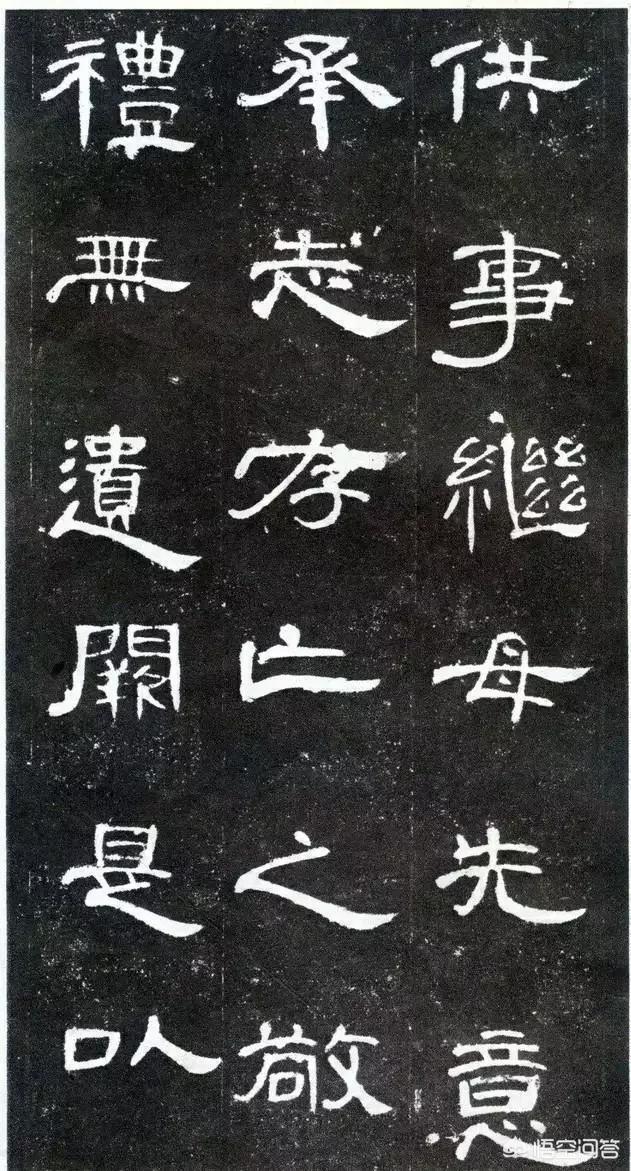 供事繼母先意
承志存亡之敬
禮無遺闕是以
悟空问答